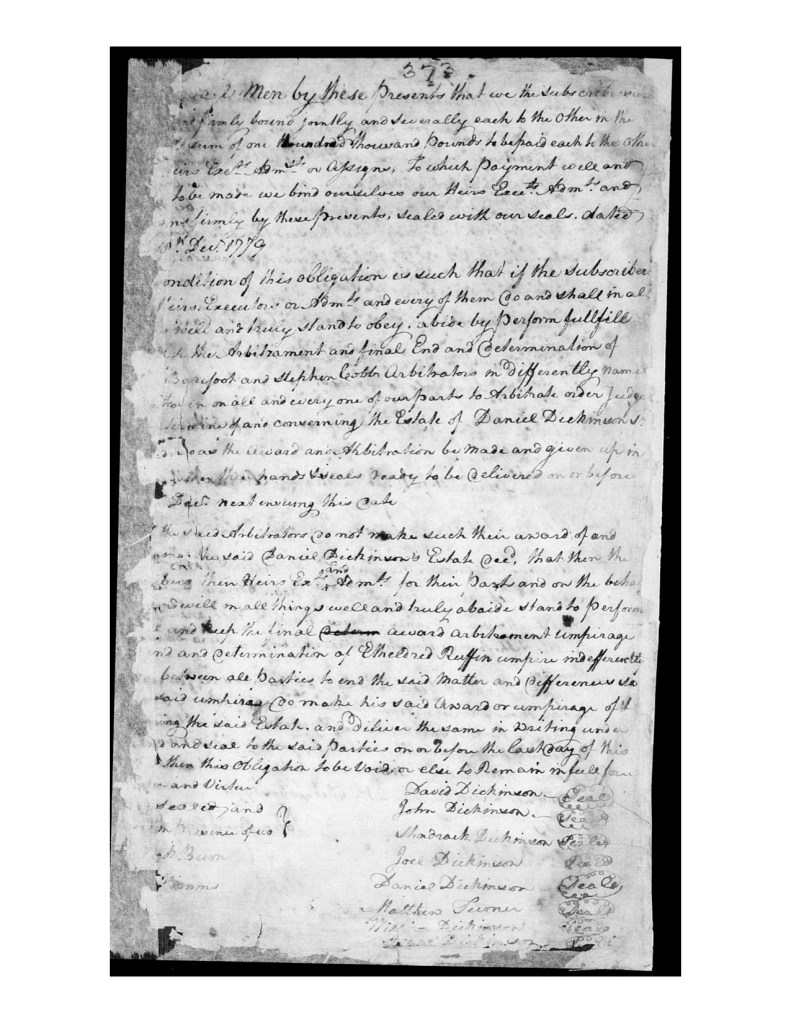 373
Men by these Presents that we the subscribers
firmly bound jointly and severally each to the other in the
sum of one hundred thousand pounds to be paid each to the othe
eirs Exec.rs Adm.rs or Assigns, To which payment well and
to be made we bind ourselves our Heirs Exec.rs Adm.rs and
firmly by these presents, sealed with our seals. dated
Dec.r 1779
ondition of this obligation is such that if the subscriber
eirs, Executors or Adm.rs and every of them do and shall in al
well and truly stand to obey, abide by perform fullfill
the Arbitrament and final End and Determination of
Barefoot and Stephen Cobb Arbitrators indifferently name
on all and every one of our parts to Arbitrate order Judge
of and concerning the Estate of Daniel Dickinson
so as the award and Arbitration be made and given up in
hands & seals ready to be delivered on or before
Dec.r next ensuing this date
the said Arbitrators do not make such their award of and
the said Daniel Dickinson's Estate Dec.d, that then the
then Heirs Ex.rs and Adm.rs for their part and on the beha
will in all things well and truly abaide stand to perform
and keep the final award arbitrament umpirage
nd and Determination of Etheldred Ruffin umpire indefferently
between all Parties to end the said matter and differences
said umpire do make his said Award or umpirage of
ing the said Estate, and deliver the same in writing under
d and seal to the said Parties on or before the last day of this
then this Obligation to be Void, or else to Remain in full
and Virtue
David Dickinson Seal
sealed, and
John Dickinson Seal
of us
Shadrack Dickinson Seal
Joel Dickinson Seal
Daniel Dickinson Seal
Matthew Turner Seal
Dickinson Seal
Dickinson